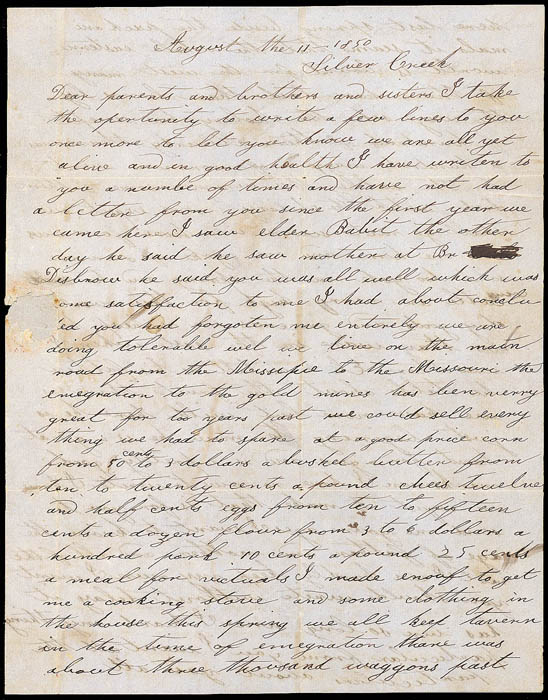 August the 11 - 1850
Silver Creek
Dear parents and brothers and sisters I take
the opertunity to write a few lines to you
once more to let you know we are all yet
alive and in good health I have writen to
you a numbe of times and have not had
a letter from you since the first year we
came here I saw elder Babit the other
day he said he saw mother at Br
Disbrow he said you was all well which was
some satisfaction to me I had about conclu
ed you had forgoten me entirely we are
doing tolerable wel we live on the main
road from the Missipie to the Missouri the
emegration to the gold mines has ben verry
great for too years past we could sell every
thing we had to spare at a good price corn
from 50 cents to 3 dollars a bushel butter from
ten to twenty cents a pound chees twelve
and half cents eggs from ten to fifteen
cents a dozen flour from 3 to 6 dollars a
hundred pork 10 cents a pound 25 cents
a meal for victuals I made enouf to get
me a cooking stove and some clothing in
the house this spring we all keep tavern
in the time of emegration thare was
about three thousand waggons past